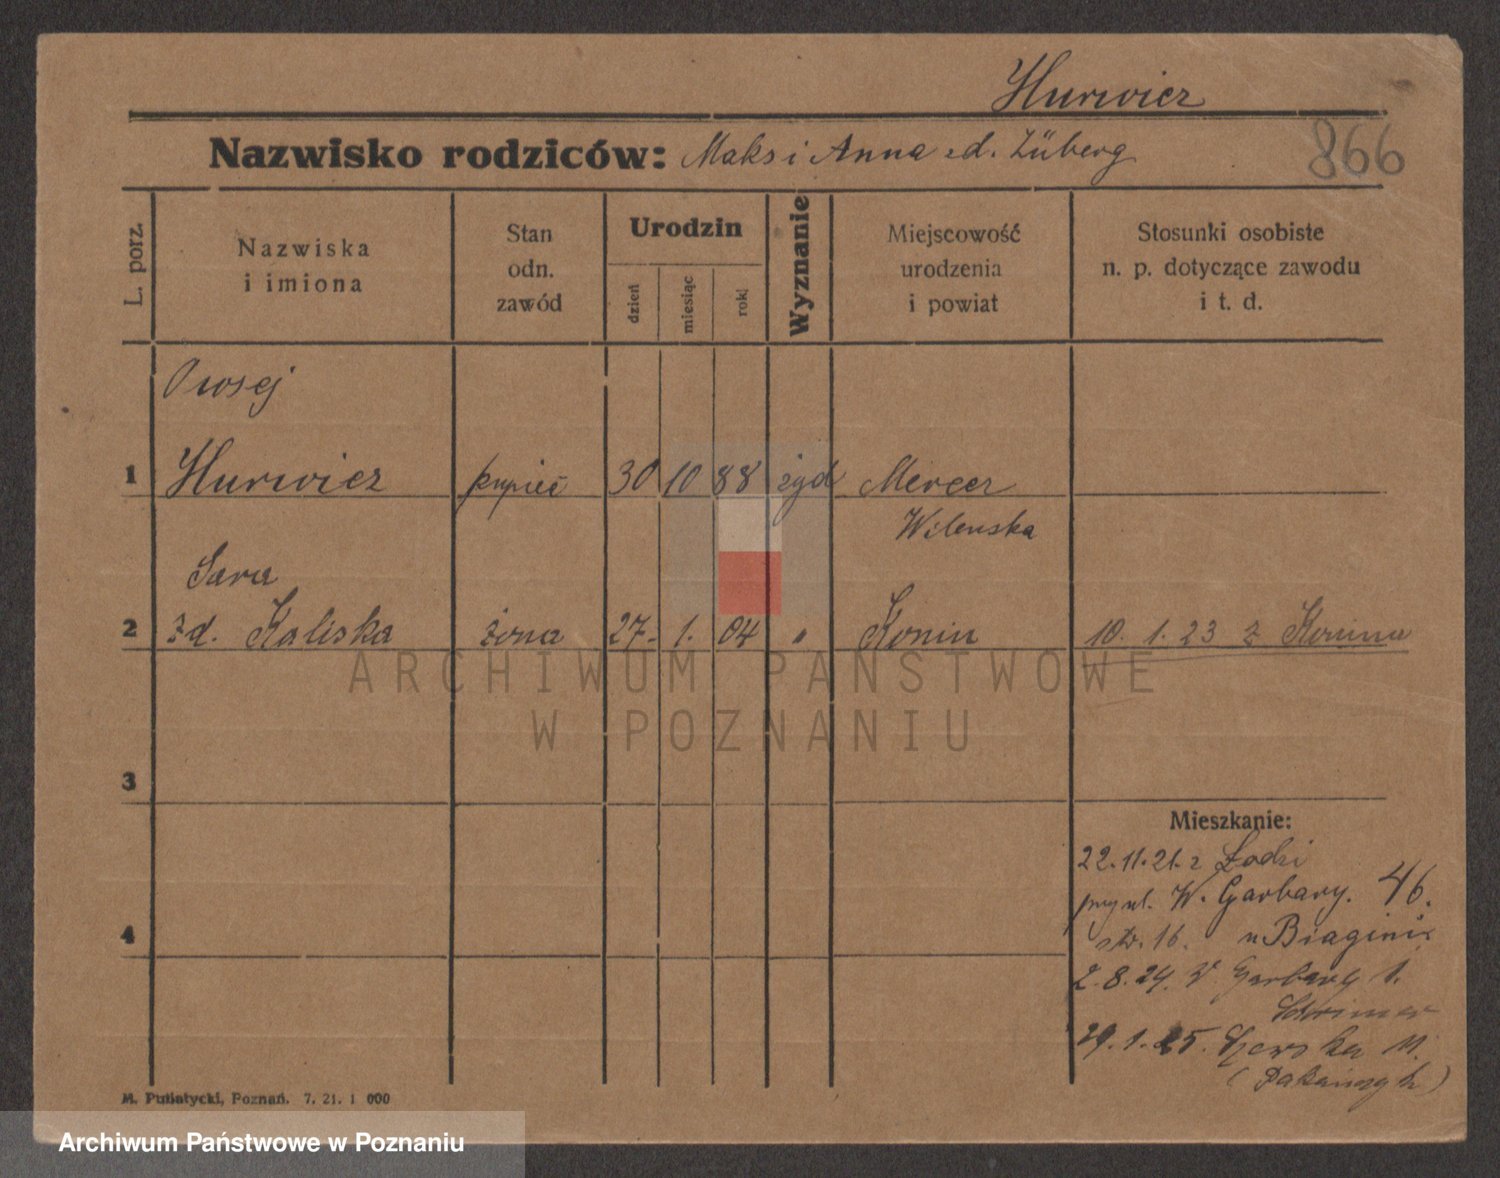 Hurwicz
Nazwisko rodziców: Maks i Anna zd. Züberg
866
L. porz.
Nazwiska
i imiona
Stan
odn.
zawód
Urodzin
dzień
miesiąc
rok
Wyznanie
Miejscowość
urodzenia
i powiat
Stosunki osobiste
n. p. dotyczące zawodu
i t. d.
Owsej
1 Hurwicz kupiec 30 10 88 żyd Merecz
Wilenska
Sara
2 zd. Kaliska żona 27. 1. 04 " Konin 10. 1. 23 z Konina
ARCHIWUM PAŃSTWOWE
W POZNANIU
3
Mieszkanie:
22.11.21. z Łodzi
przy ul. W. Garbary. 46.
str. 16. u Biagini
4
2.8.24. W Garbary 1.
29.1.25. 11.
M. Putiatycki, Poznań. 7. 21. 1 000
Archiwum Państwowe w Poznaniu